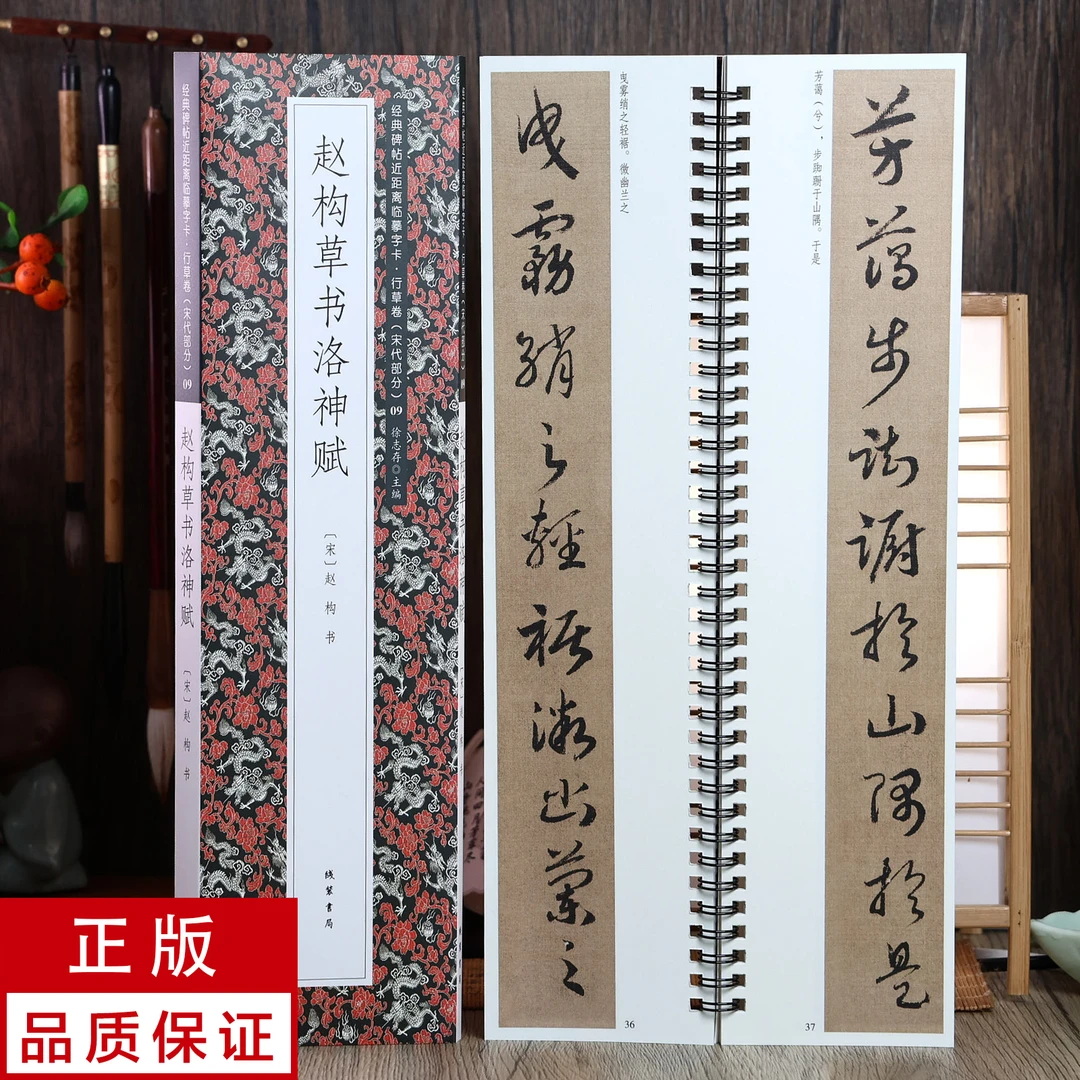 经典碑帖近距离临摹字卡·行草卷（宋代部分）09
赵构草书洛神赋
〔宋〕赵构书
赵构草书洛神赋
〔宋〕赵构书
线装书局
经典碑帖近距离临摹字卡·行草卷（宋代部分）09
徐志存◎主编
曳雾绡之轻裾。微幽兰之
曳雾绡之轻裾微幽兰之
36
芳蔼（兮），步踟蹰于山隅。于是
芳蔼步踟蹰於山隅於是
37
正版
品质保证